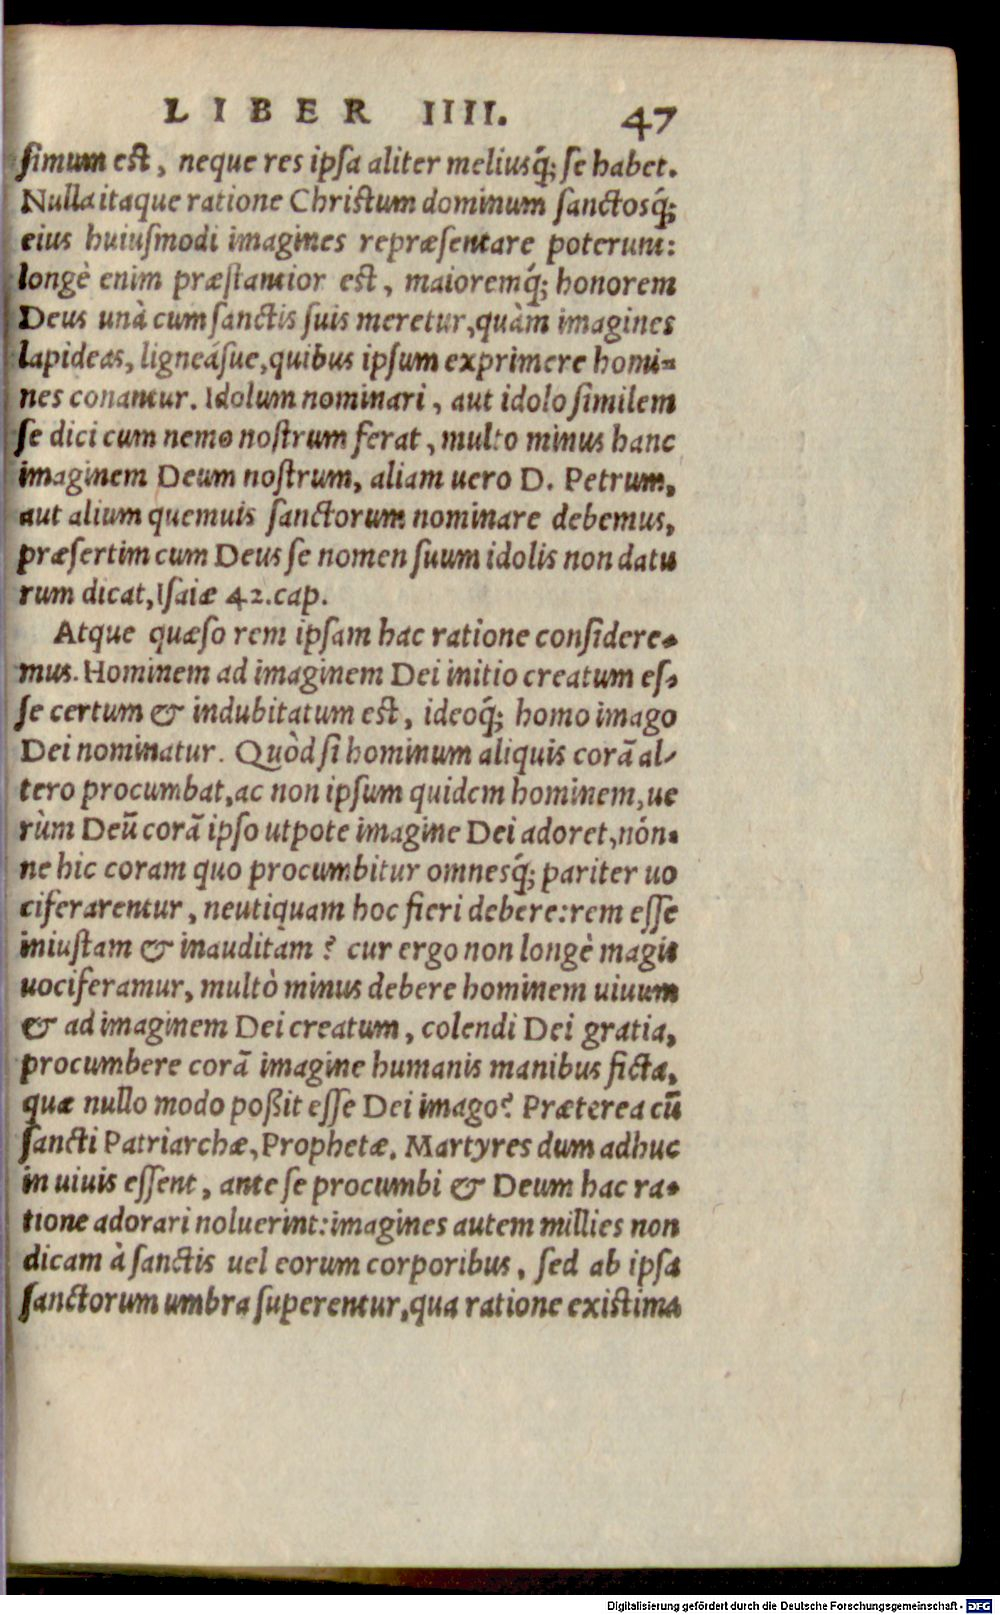 LIBER IIII. 47
ſimum eſt, neque res ipſa aliter meliusq́; ſe habet.
Nulla itaque ratione Chriſtum dominum ſanctosq́;
eius huiuſmodi imagines repræſentare poterunt:
longè enim præſtantior eſt, maioremq́; honorem
Deus unà cum ſanctis ſuis meretur, quàm imagines
lapideas, ligneáſue, quibus ipſum exprimere homi-
nes conantur. Idolum nominari, aut idolo ſimilem
ſe dici cum nemo noſtrum ferat, multo minus hanc
imaginem Deum noſtrum, aliam uero D. Petrum,
aut alium quemuis ſanctorum nominare debemus,
præſertim cum Deus ſe nomen ſuum idolis non datu
rum dicat, Iſaiæ 42. cap.
Atque quæſo rem ipſam hac ratione conſidere-
mus. Hominem ad imaginem Dei initio creatum eſ-
ſe certum & indubitatum eſt, ideoq́; homo imago
Dei nominatur. Quòd ſi hominum aliquis corã al-
tero procumbat, ac non ipſum quidem hominem, ue
rùm Deũ corã ipſo utpote imagine Dei adoret, nón-
ne hic coram quo procumbitur omnesq́; pariter uo
ciferarentur, neutiquam hoc fieri debere: rem eſſe
iniuſtam & inauditam? cur ergo non longè magis
uociferamur, multò minus debere hominem uiuum
& ad imaginem Dei creatum, colendi Dei gratia,
procumbere corã imagine humanis manibus ficta,
quæ nullo modo poßit eſſe Dei imago? Præterea cũ
ſancti Patriarchæ, Prophetæ, Martyres dum adhuc
in uiuis eſſent, ante ſe procumbi & Deum hac ra-
tione adorari noluerint: imagines autem millies non
dicam à ſanctis uel eorum corporibus, ſed ab ipſa
ſanctorum umbra ſuperentur, qua ratione exiſtima
Digitalisierung gefördert durch die Deutsche Forschungsgemeinschaft - DFG